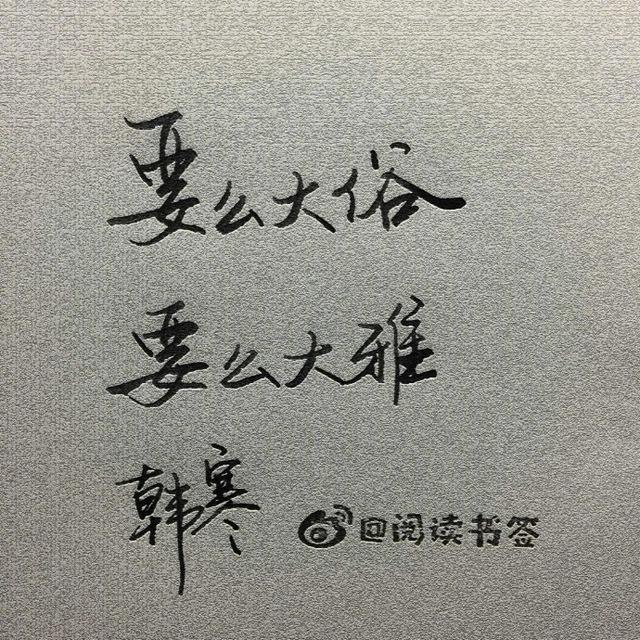 要么大俗
要么大雅
韩寒
@阅读书签